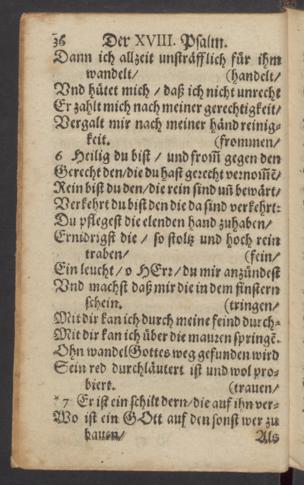 36 Der XVIII. Psalm.
Dann ich allzeit unsträfflich für ihm
wandelt/ (handelt/
Vnd hütet mich / daß ich nicht unrecht
Er zahlt mich nach meiner gerechtigkeit/
Vergalt mir nach meiner händ reinig-
keit. (frommen/
6 Heilig du bist / und from̃ gegen den
Gerecht den/die du hast gerecht vernom̃ẽ/
Rein bist du den/die rein sind uñ bewärt/
Verkehrt du bist den die da sind verkehrt:
Du pflegest die elenden hand zuhaben/
Ernidrigst die / so stoltz und hoch rein
traben/ (fein/
Ein leucht/ o HErr/ du mir anzündest
Vnd machst daß mir die in dem finstern
schein. (tringen/
Mit dir kan ich durch meine feind durch-
Mit dir kan ich über die mauren springẽ.
Ohn wandel Gottes weg gefunden wird
Sein red durchläutert ist und wol pro-
biert. (trauen/
* 7 Er ist ein schilt dern/die auf ihn ver-
Wo ist ein GOtt auf den sonst wer zu
bauen/ Als